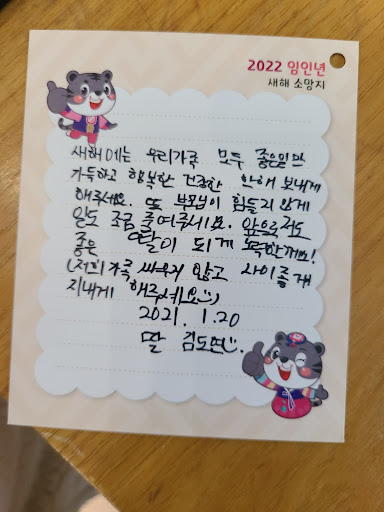 2022 임인년
새해 소망지
새해에는 우리가족 모두 좋은일만
가득하고 행복한 건강한 한해 보내게
해주세요. 또 부모님이 힘들지 않게
일도 조금 줄여주세요. 앞으로도
좋은 딸이 되게 노력할께요!
(저희가족 싸우지 않고 사이좋게
지내게 해주세요:))
2021. 1.20
딸 김도연:).